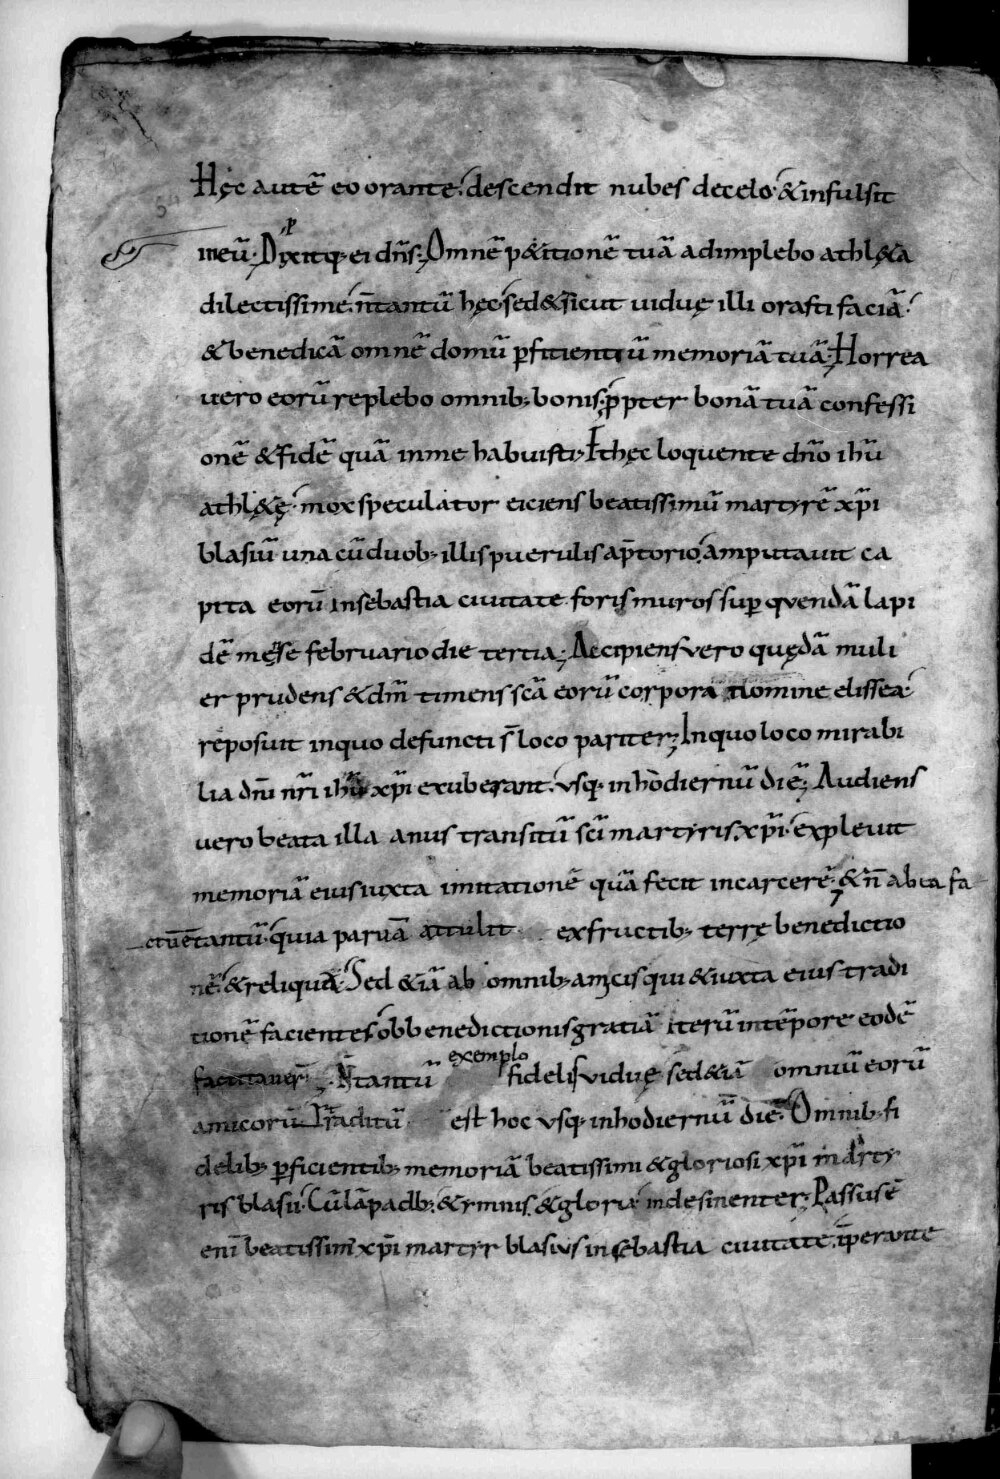 Hęc autē eo orante. descendit nubes decelo. & infulsit
ineū. Dixitq; ei dn̄s. Omnē p&itionē tuā adimplebo athl&a
dilectissime. n̄ tantū hęc. sed & sicut uiduę illi orasti faciā.
& benedicā omnē domū ꝑficientiū memoriā tuā. Horrea
uero eorū replebo omnib; bonis. ꝓpter bonā tuā confessi
onē & fidē quā inme habuisti. Ethęc loquente dn̄o ihū
athl&ę. mox speculator eiciens beatissimū martyrē xp̄i
blasiū una cū duob; illis puerulis ap̄torio. amputauit ca
pita eorū Insebastia ciuitate foris muros suꝑ quendā lapi
dē mense februario die tertia; Accipiens vero quędā muli
er prudens & dm̄ timens scā eorū corpora nomine elissea.
reposuit inquo defuncti s̄ loco pariter; Inquo loco mirabi
lia dn̄i nr̄i ihū xp̄i exuberant. vsq; inhodiernū diē; Audiens
vero beata illa anus transitū scī martyris xp̄i. expleuit
memoriā eius iuxta imitationē quā fecit incarcerē. & n̄ abea fa
ctūētantū. quia paruā attulit exfructib; terrę benedictio
nē. & reliquā. Sed &iā ab omnib; amicis qui & iuxta eius tradi
tionē facientes. ob benedictionis gratiā iterū intēpore eodē
factitauer̄; N̄ tantū exemplo fidelis viduę sed &iā omniū eorū
amicorū Traditū est hoc vsq; inhodiernū diē. Omnib; fi
delib; ꝑficientib; memoriā beatissimi & gloriosi xp̄i marty
ris blasii. Cū lāpadb; & ymnis. & gloria indesinenter; Passusē
enī beatissim' xp̄i martyr blasius insebastia ciuitate. īperante